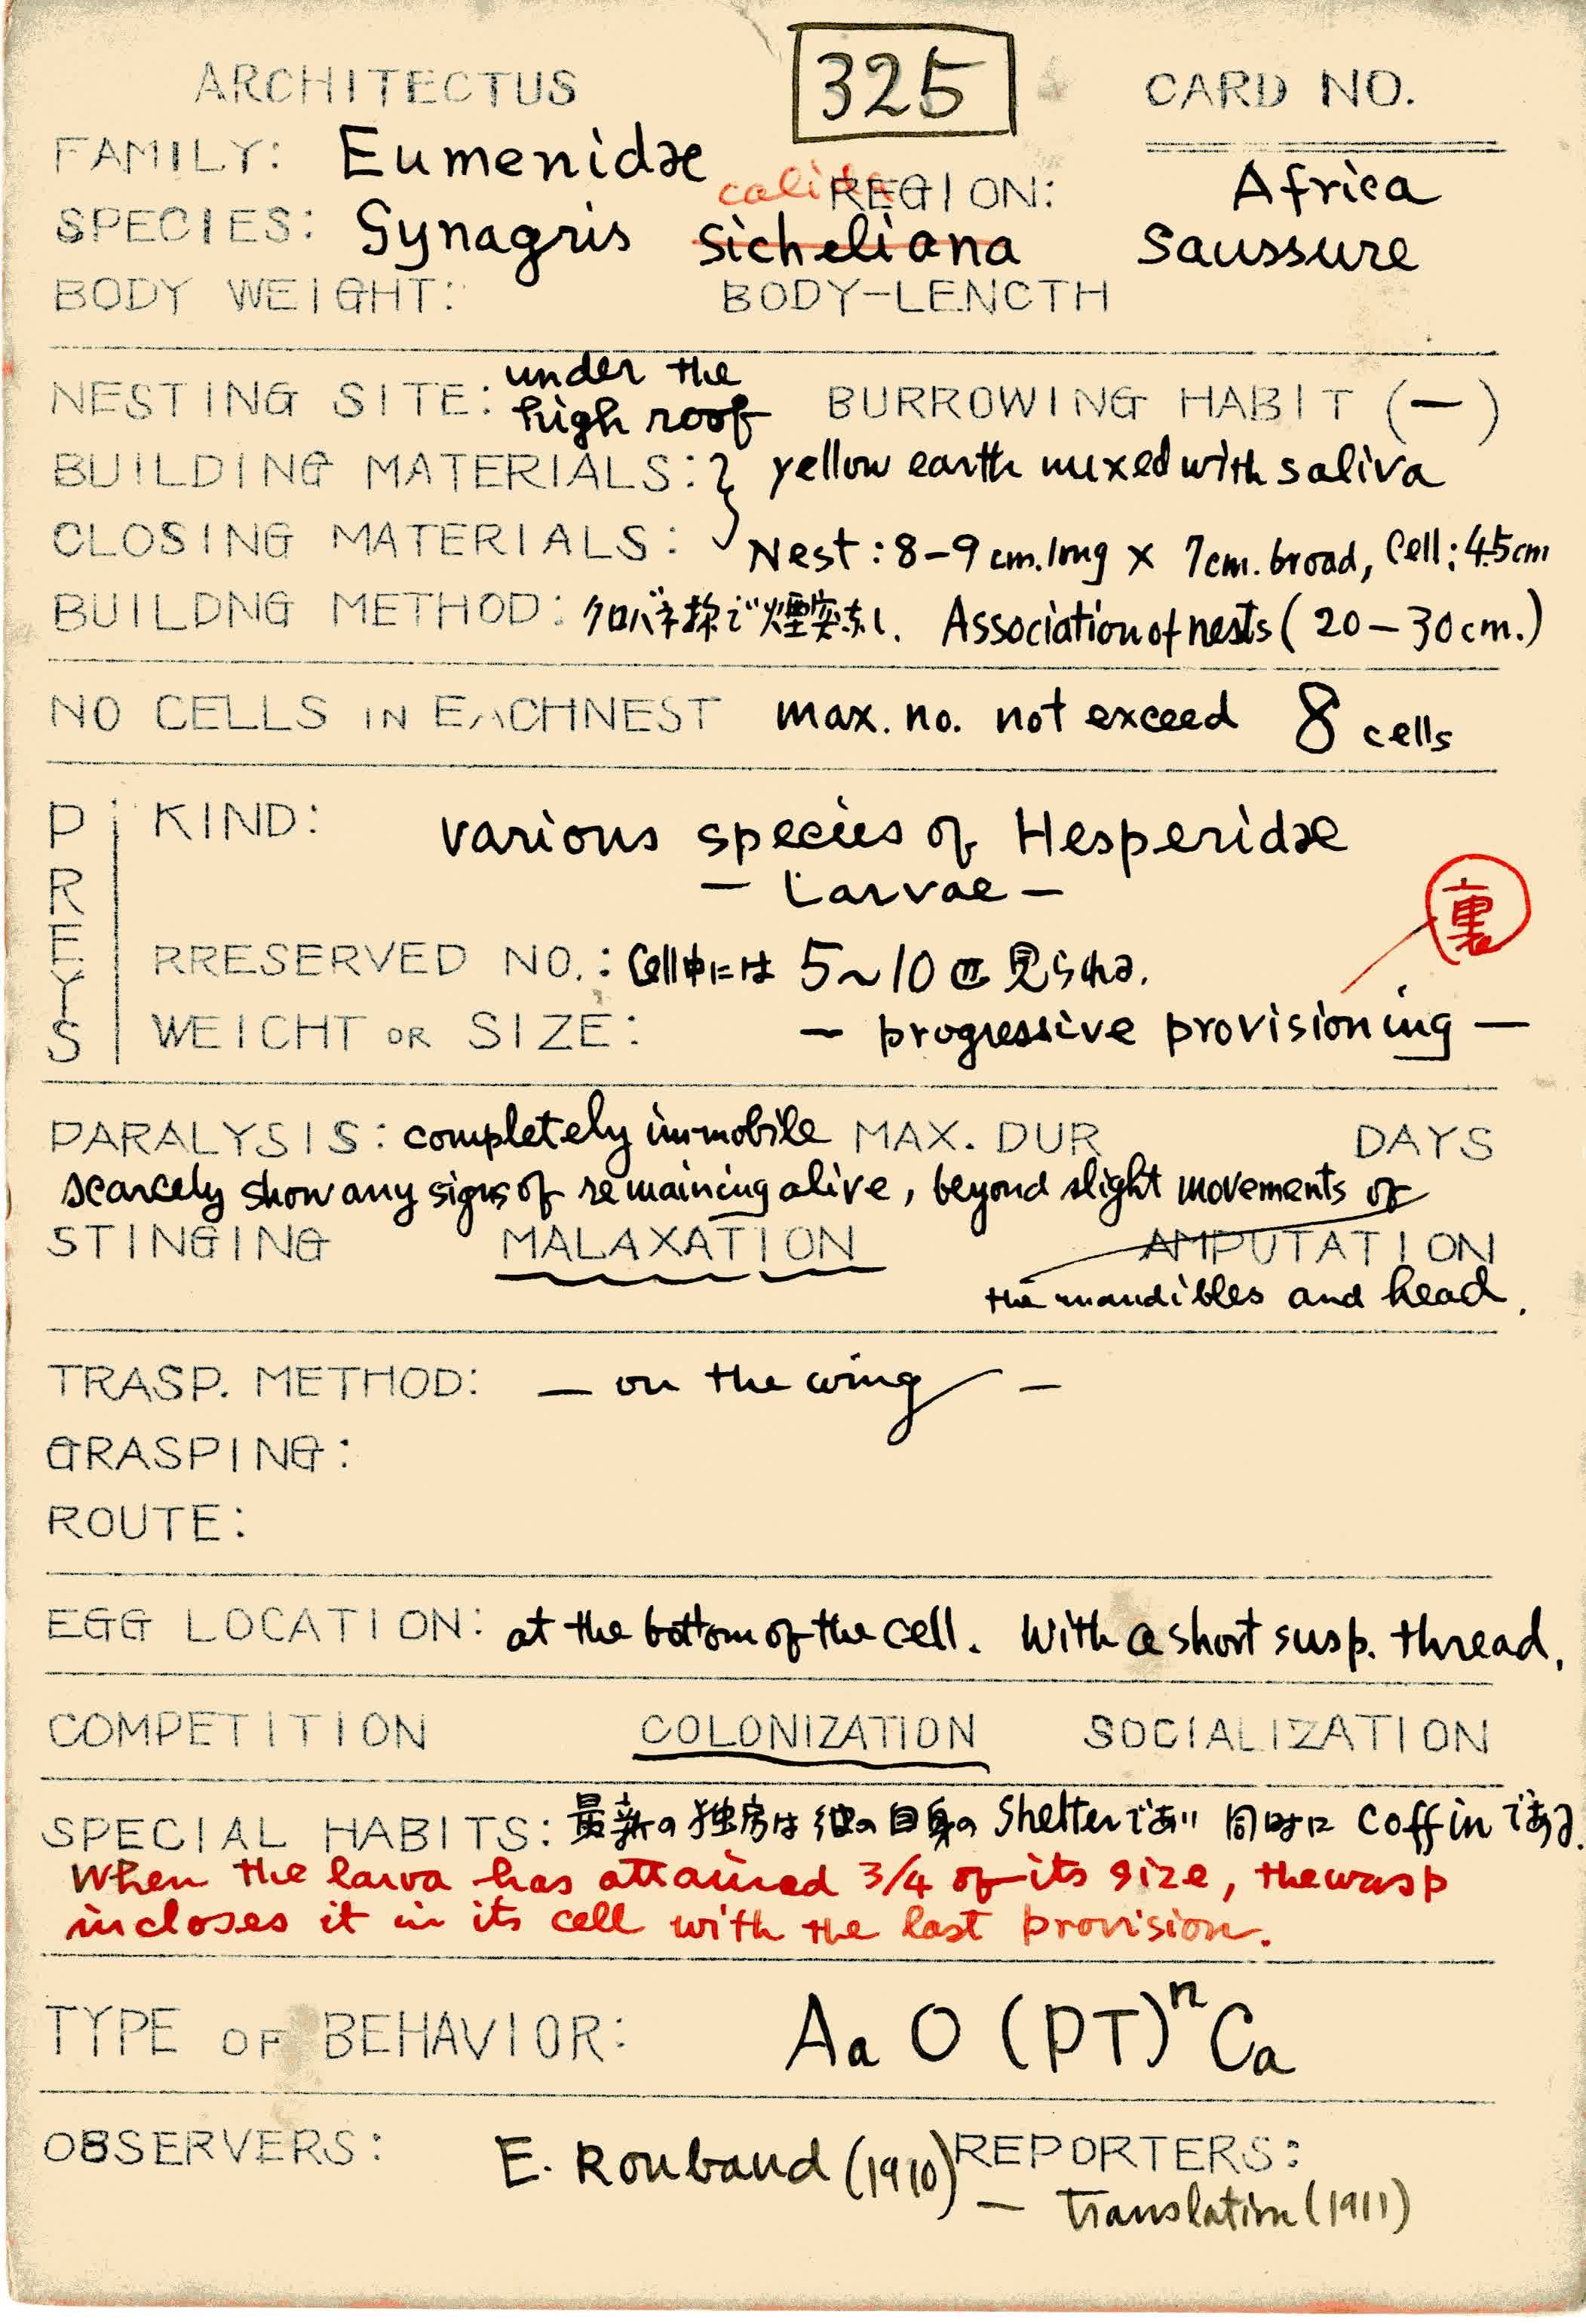 ARCHITECTUS 325 CARD NO.
FAMILY: Eumenidæ REGION: Africa
calida
SPECIES: Synagris sicheliana Saussure
BODY WEIGHT: BODY-LENCTH
NESTING SITE: under the high roof BURROWING HABIT (—)
BUILDING MATERIALS: yellow earth mixed with saliva
CLOSING MATERIALS: Nest: 8-9 cm. long × 7cm. broad, Cell: 4.5cm
BUILDNG METHOD: Association of nests (20-30cm.)
NO CELLS IN EACHNEST max. no. not exceed 8 cells
PREYS
KIND: various species of Hesperidæ
— Larvae —
裏
RRESERVED NO.: Cell中には 5~10匹見られる.
WEICHT OR SIZE: — progressive provisioning —
PARALYSIS: completely immobile MAX. DUR DAYS
scarcely show any signs of remaining alive, beyond slight movements of
STINGING MALAXATION AMPUTATION
the mandibles and head.
TRASP. METHOD: — on the wing —
GRASPING:
ROUTE:
EGG LOCATION: at the bottom of the cell. With a short susp. thread.
COMPETITION COLONIZATION SOCIALIZATION
SPECIAL HABITS: 最新の独房は彼の自身の Shelterであり 同時に coffinである.
When the larva has attained 3/4 of its size, the wasp
incloses it in its cell with the last provision.
TYPE OF BEHAVIOR: Aa O (PT)ⁿ Ca
OBSERVERS: E. Roubaud (1910) REPORTERS:
— Translation (1911)